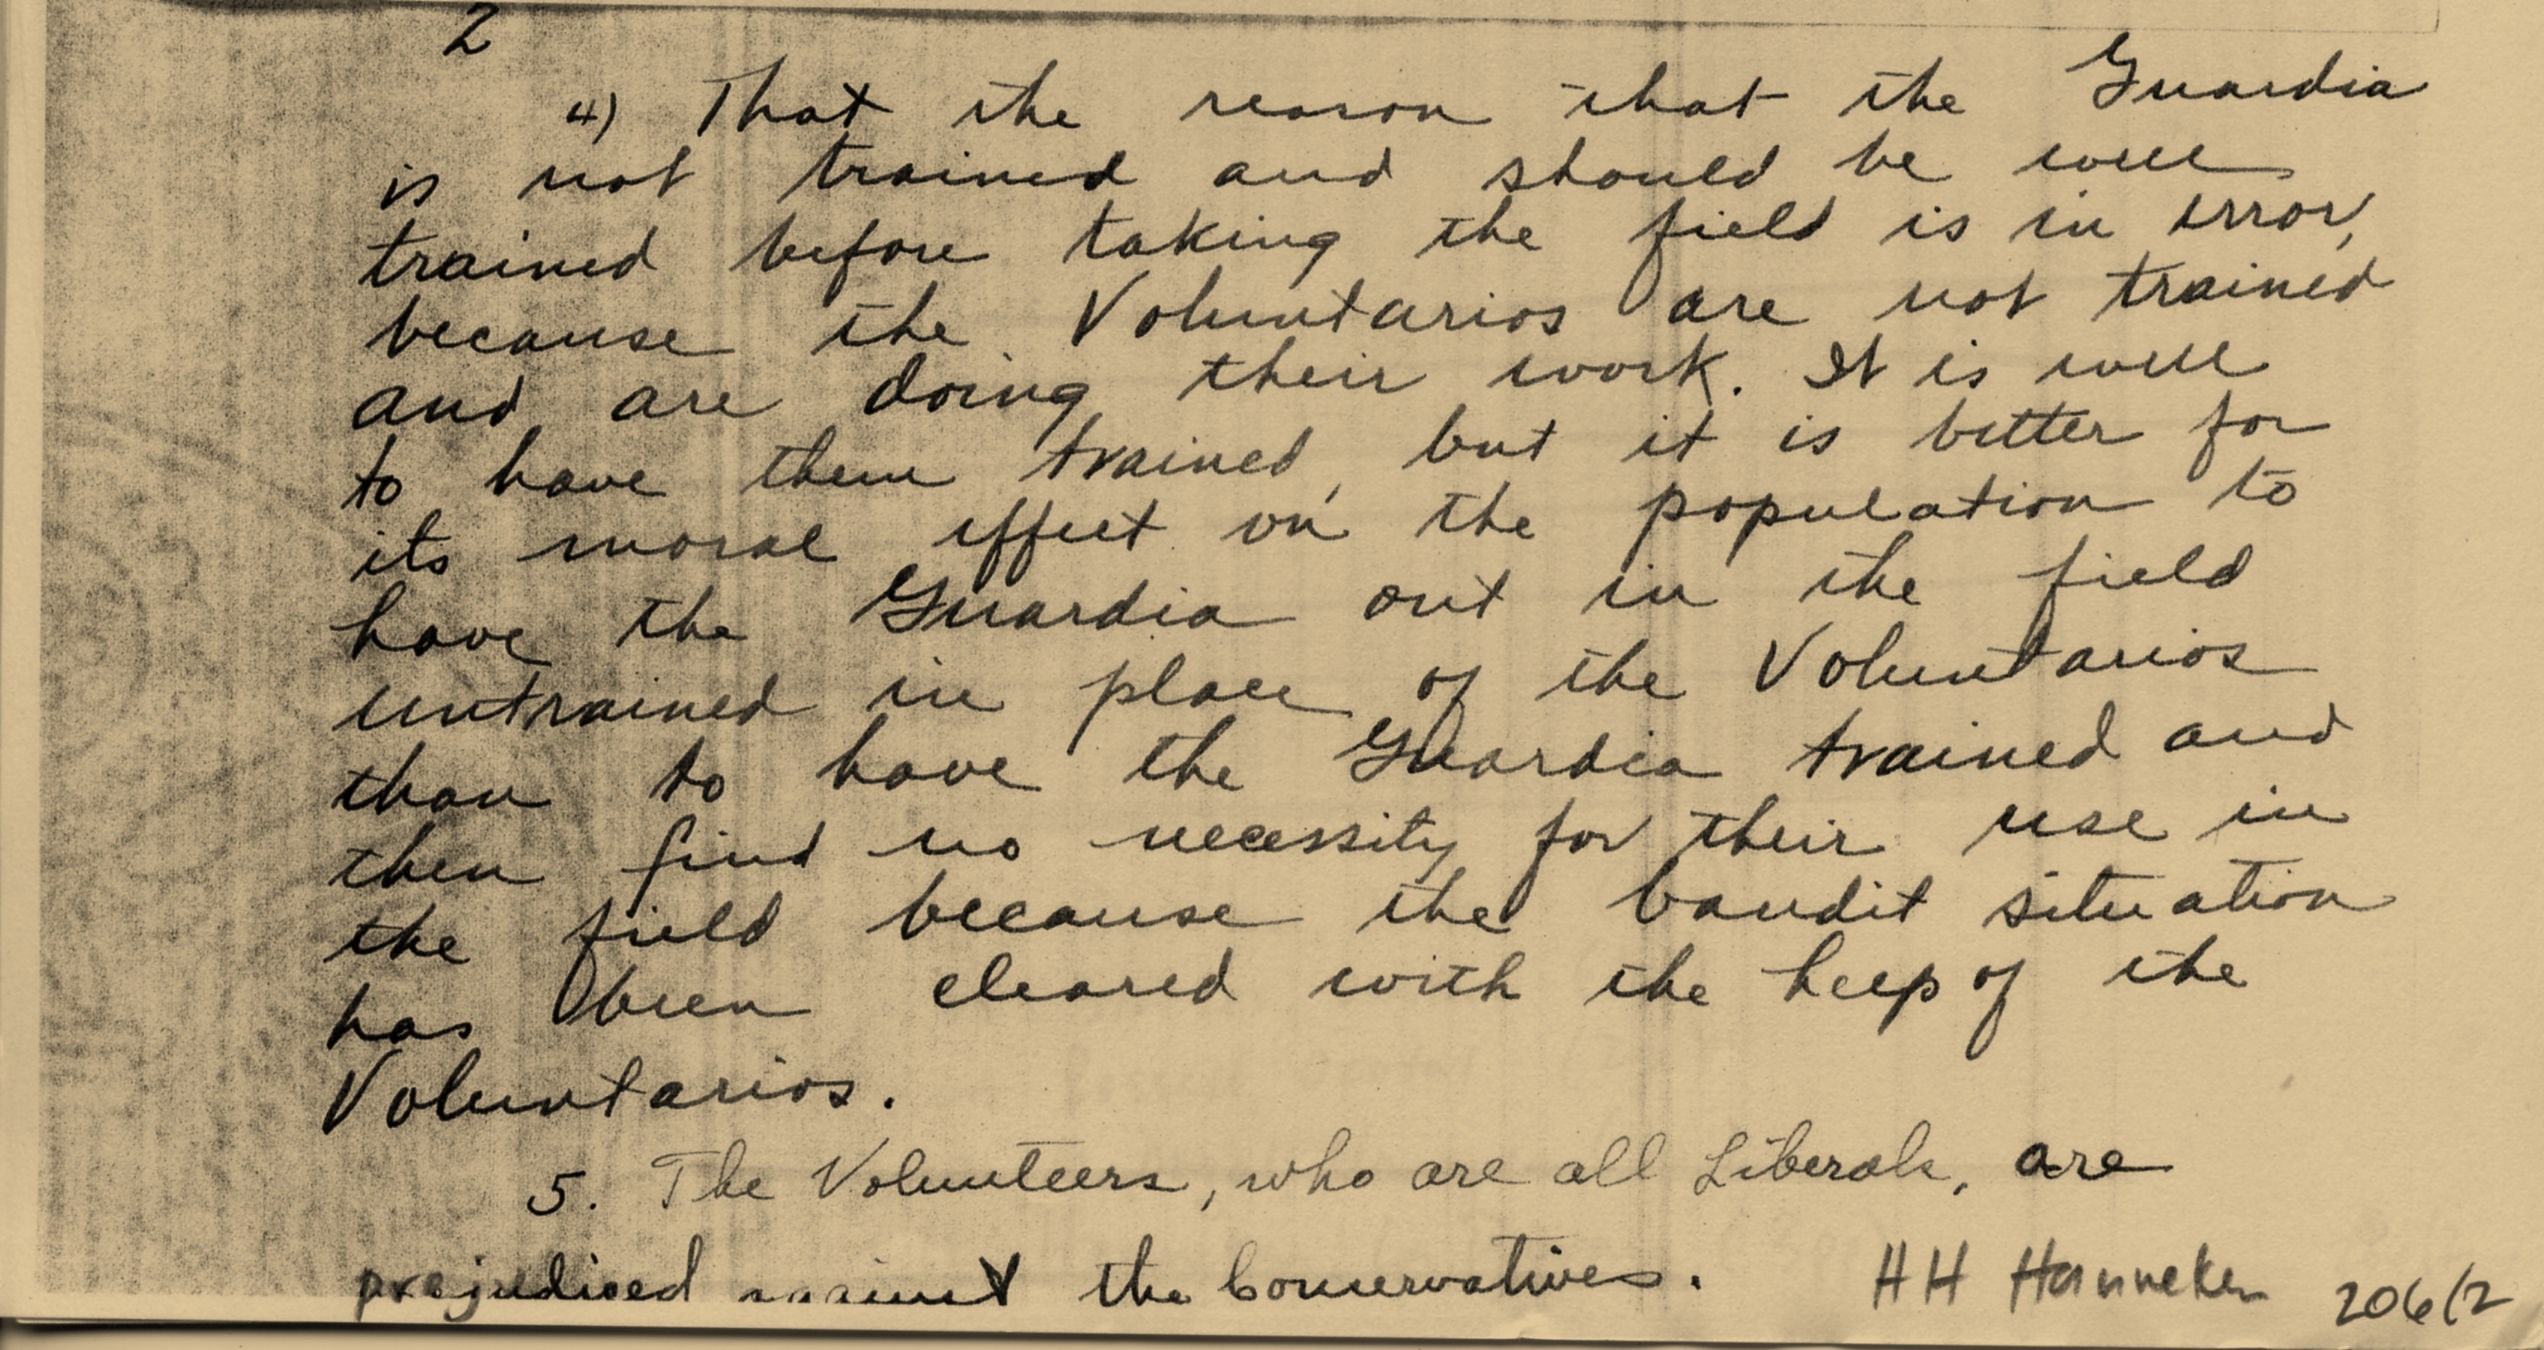 2
4) That the reason that the Guardia
is not trained and should be well
trained before taking the field is in error,
because the Voluntarios are not trained
and are doing their work. It is well
to have them trained, but it is better for
its moral effect on the population to
have the Guardia out in the field
untrained in place of the Voluntarios
than to have the Guardia trained and
then find no necessity for their use in
the field because the bandit situation
has been cleared with the help of the
Voluntarios.
5. The Volunteers, who are all Liberals, are
prejudiced against the Conservatives. HH Hanneken 206/2